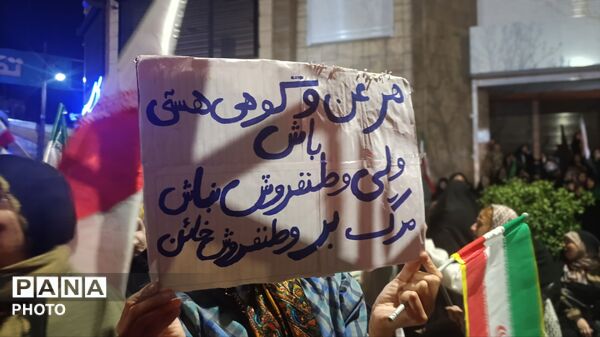 هر عن و گوهی هستی
باش
ولی وطنفروش نباش
مرگ بر وطنفروش خائن
PANA
PHOTO